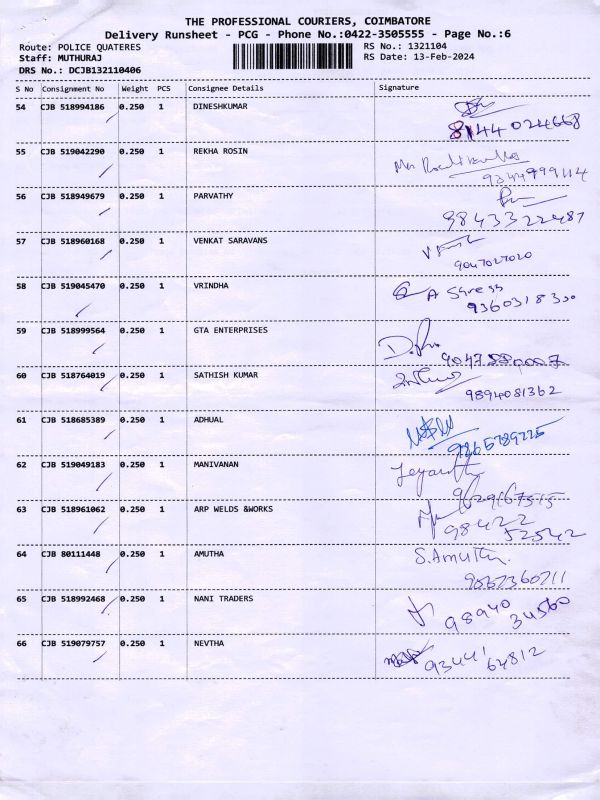 THE PROFESSIONAL COURIERS, COIMBATORE
Delivery Runsheet - PCG - Phone No.:0422-3505555 - Page No.:6
Route: POLICE QUATERES RS No.: 1321104
Staff: MUTHURAJ RS Date: 13-Feb-2024
DRS No.: DCJB132110406
S No Consignment No Weight PCS Consignee Details Signature
54 CJB 518994186 0.250 1 DINESHKUMAR
8144024668
55 CJB 519042290 0.250 1 REKHA ROSIN
9344999114
56 CJB 518949679 0.250 1 PARVATHY
9843322487
57 CJB 518960168 0.250 1 VENKAT SARAVANS
9047027020
58 CJB 519045470 0.250 1 VRINDHA
9360318330
59 CJB 518999564 0.250 1 GTA ENTERPRISES
60 CJB 518764019 0.250 1 SATHISH KUMAR
9894081362
61 CJB 518685389 0.250 1 ADHUAL
9865789225
62 CJB 519049183 0.250 1 MANIVANAN
9629167515
63 CJB 518961062 0.250 1 ARP WELDS &WORKS
98422
52542
64 CJB 80111448 0.250 1 AMUTHA S.Amutha.
9867360711
65 CJB 518992468 0.250 1 NANI TRADERS
98940
34560
66 CJB 519079757 0.250 1 NEVTHA
93441 64812